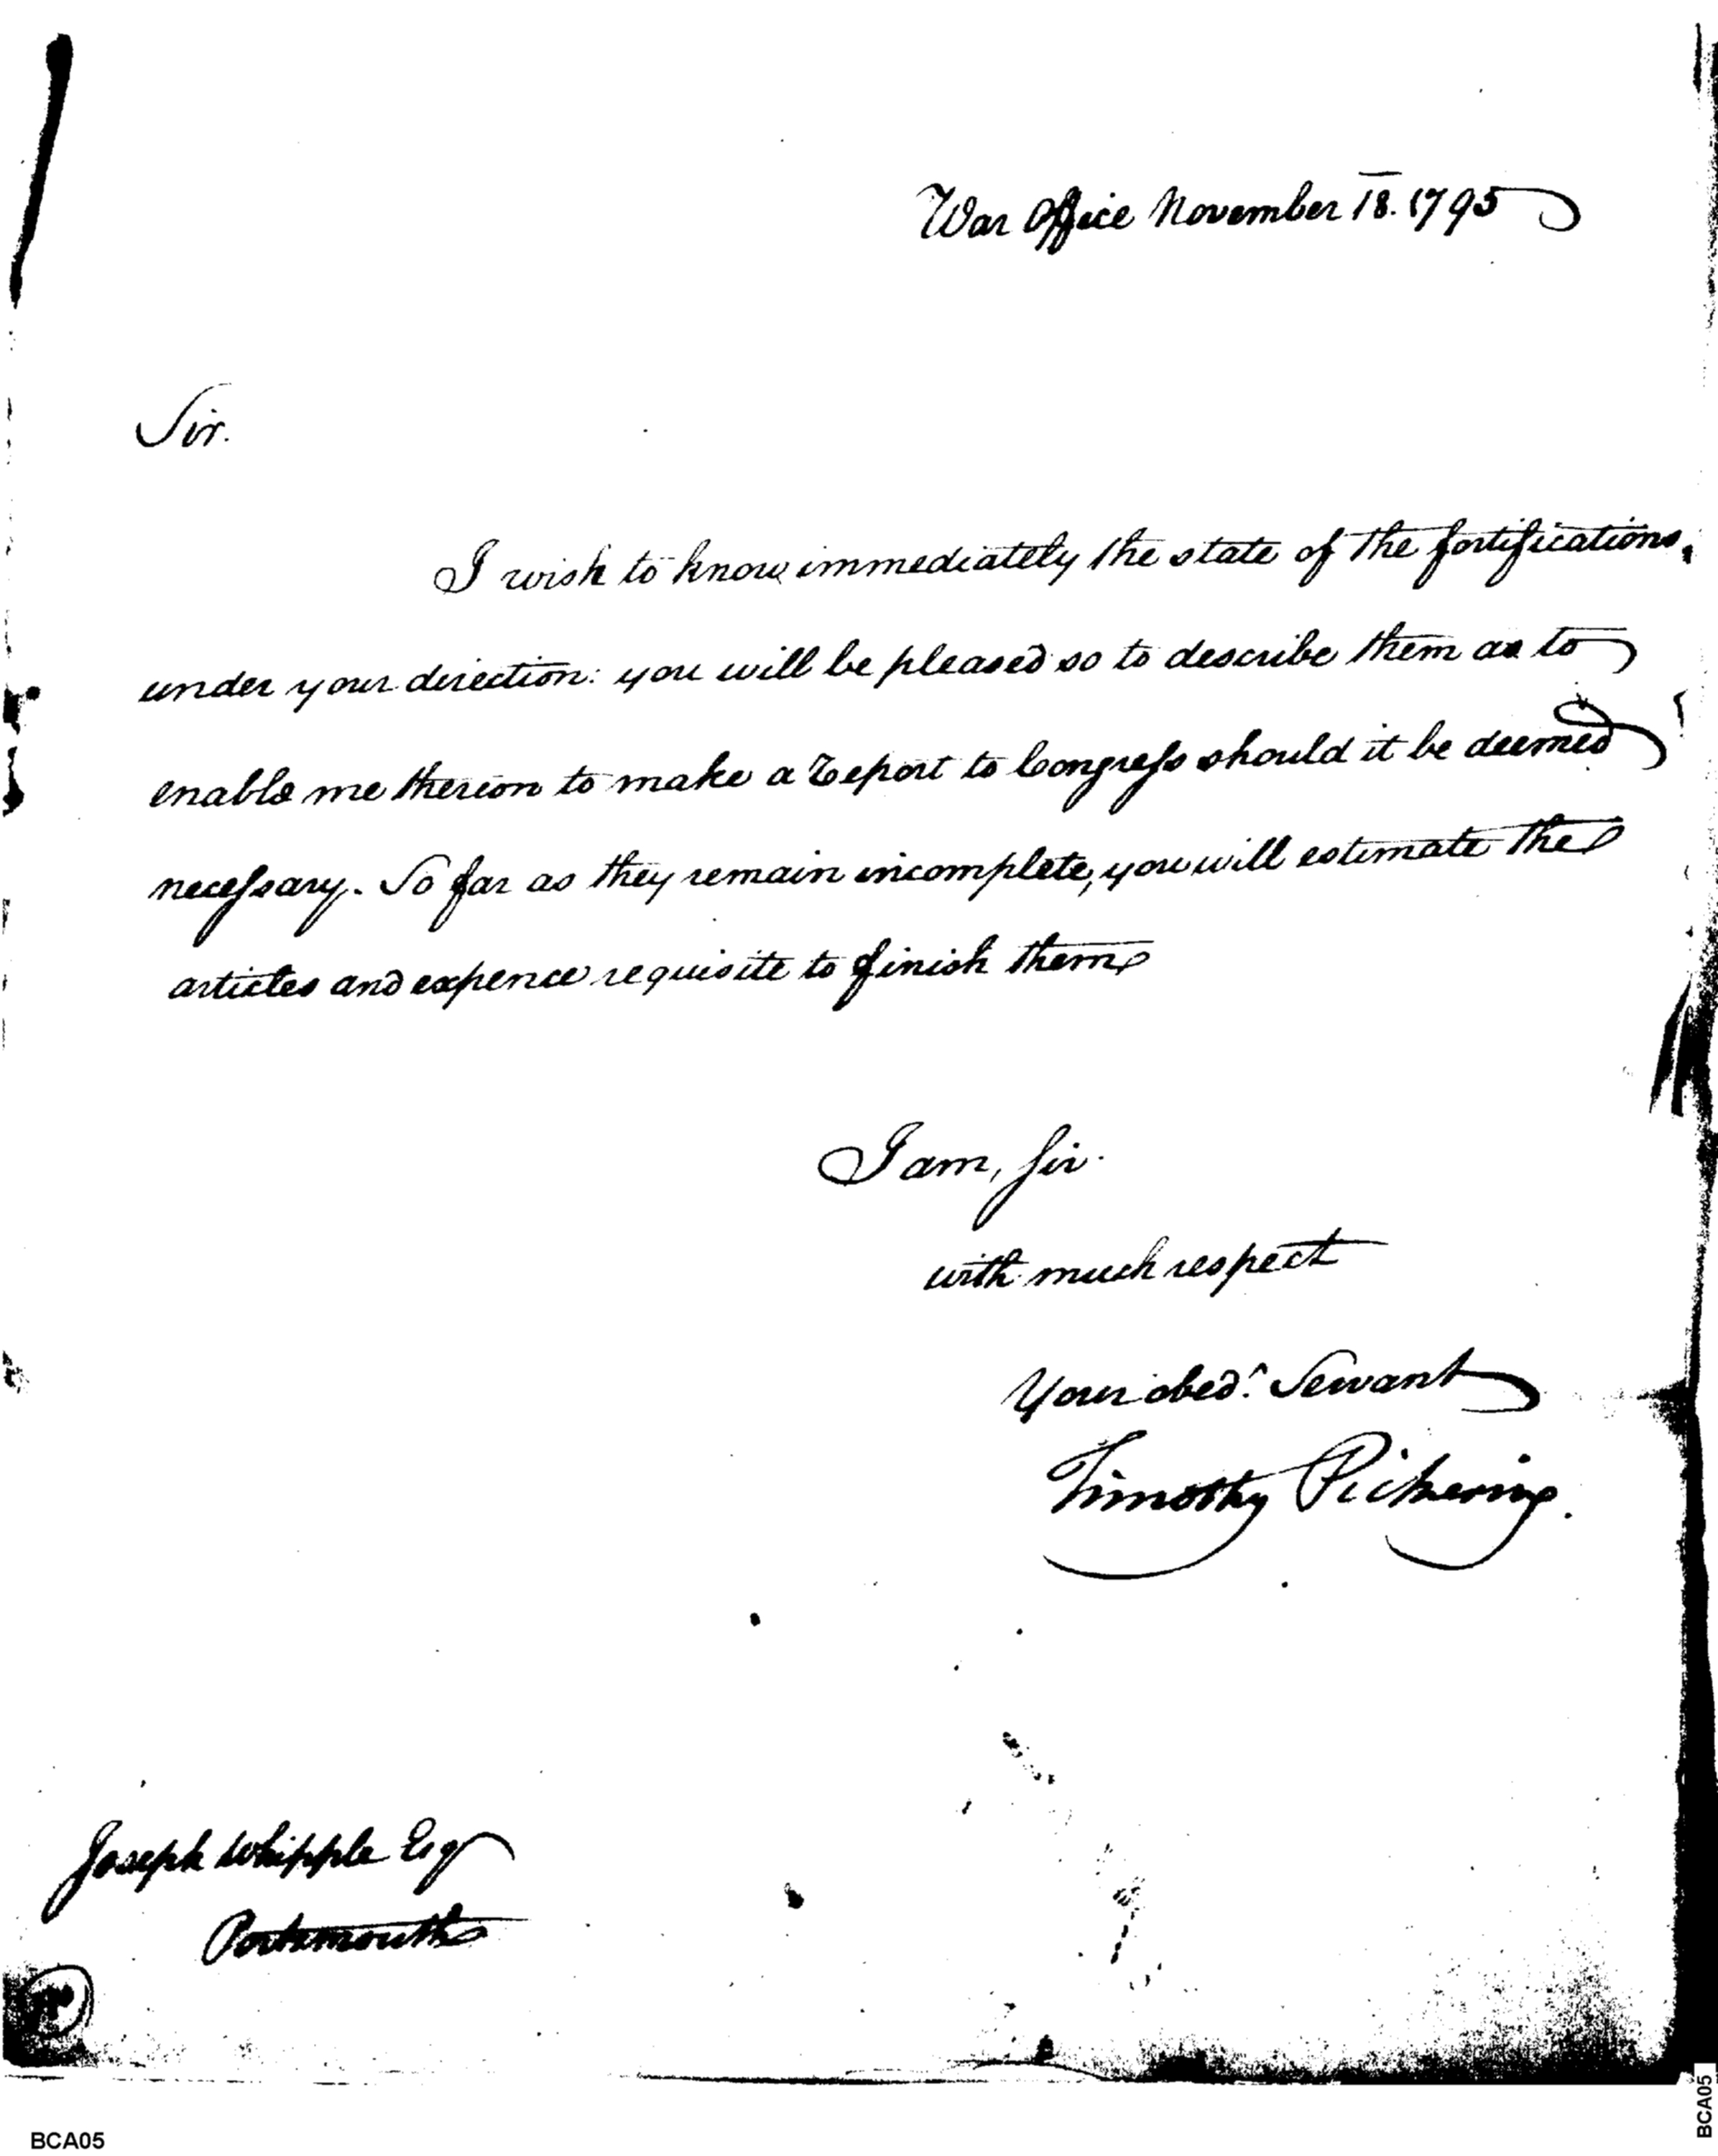 War Office November 18. 1795
Sir.
I wish to know immediately the state of the fortifications,
under your direction: you will be pleased so to describe them as to
enable me thereon to make a Report to Congress should it be deemed
necessary. So far as they remain incomplete, you will estimate the
articles and expence requisite to finish them
I am, Sir.
with much respect
Your obedt. Servant
Timothy Pickering.
Joseph Whipple Esq
Portsmouth
BCA05
BCA05